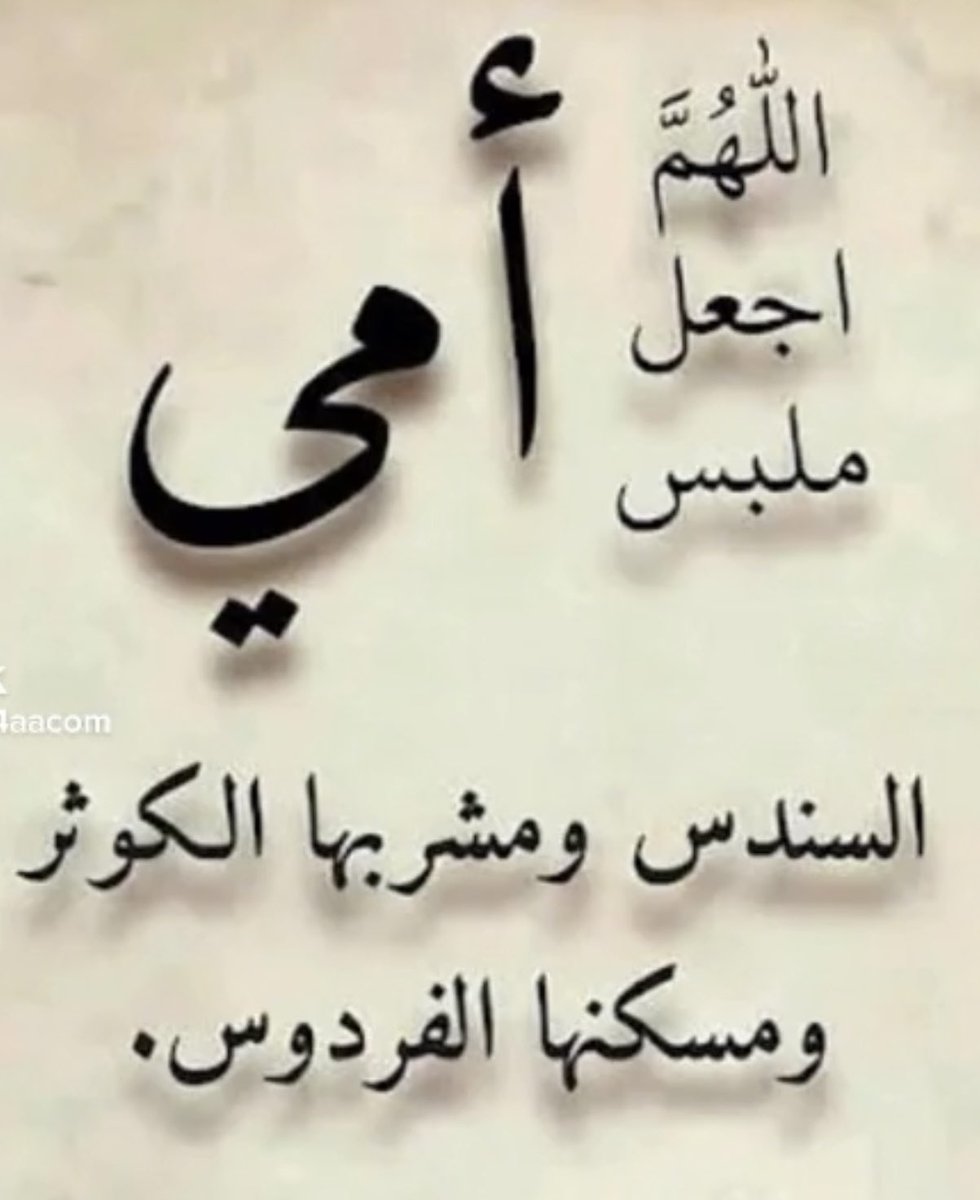 اللّٰهُمَّ
اجعل
ملبس
أمي
4aacom
السندس ومشربها الكوثر
ومسكنها الفردوس.